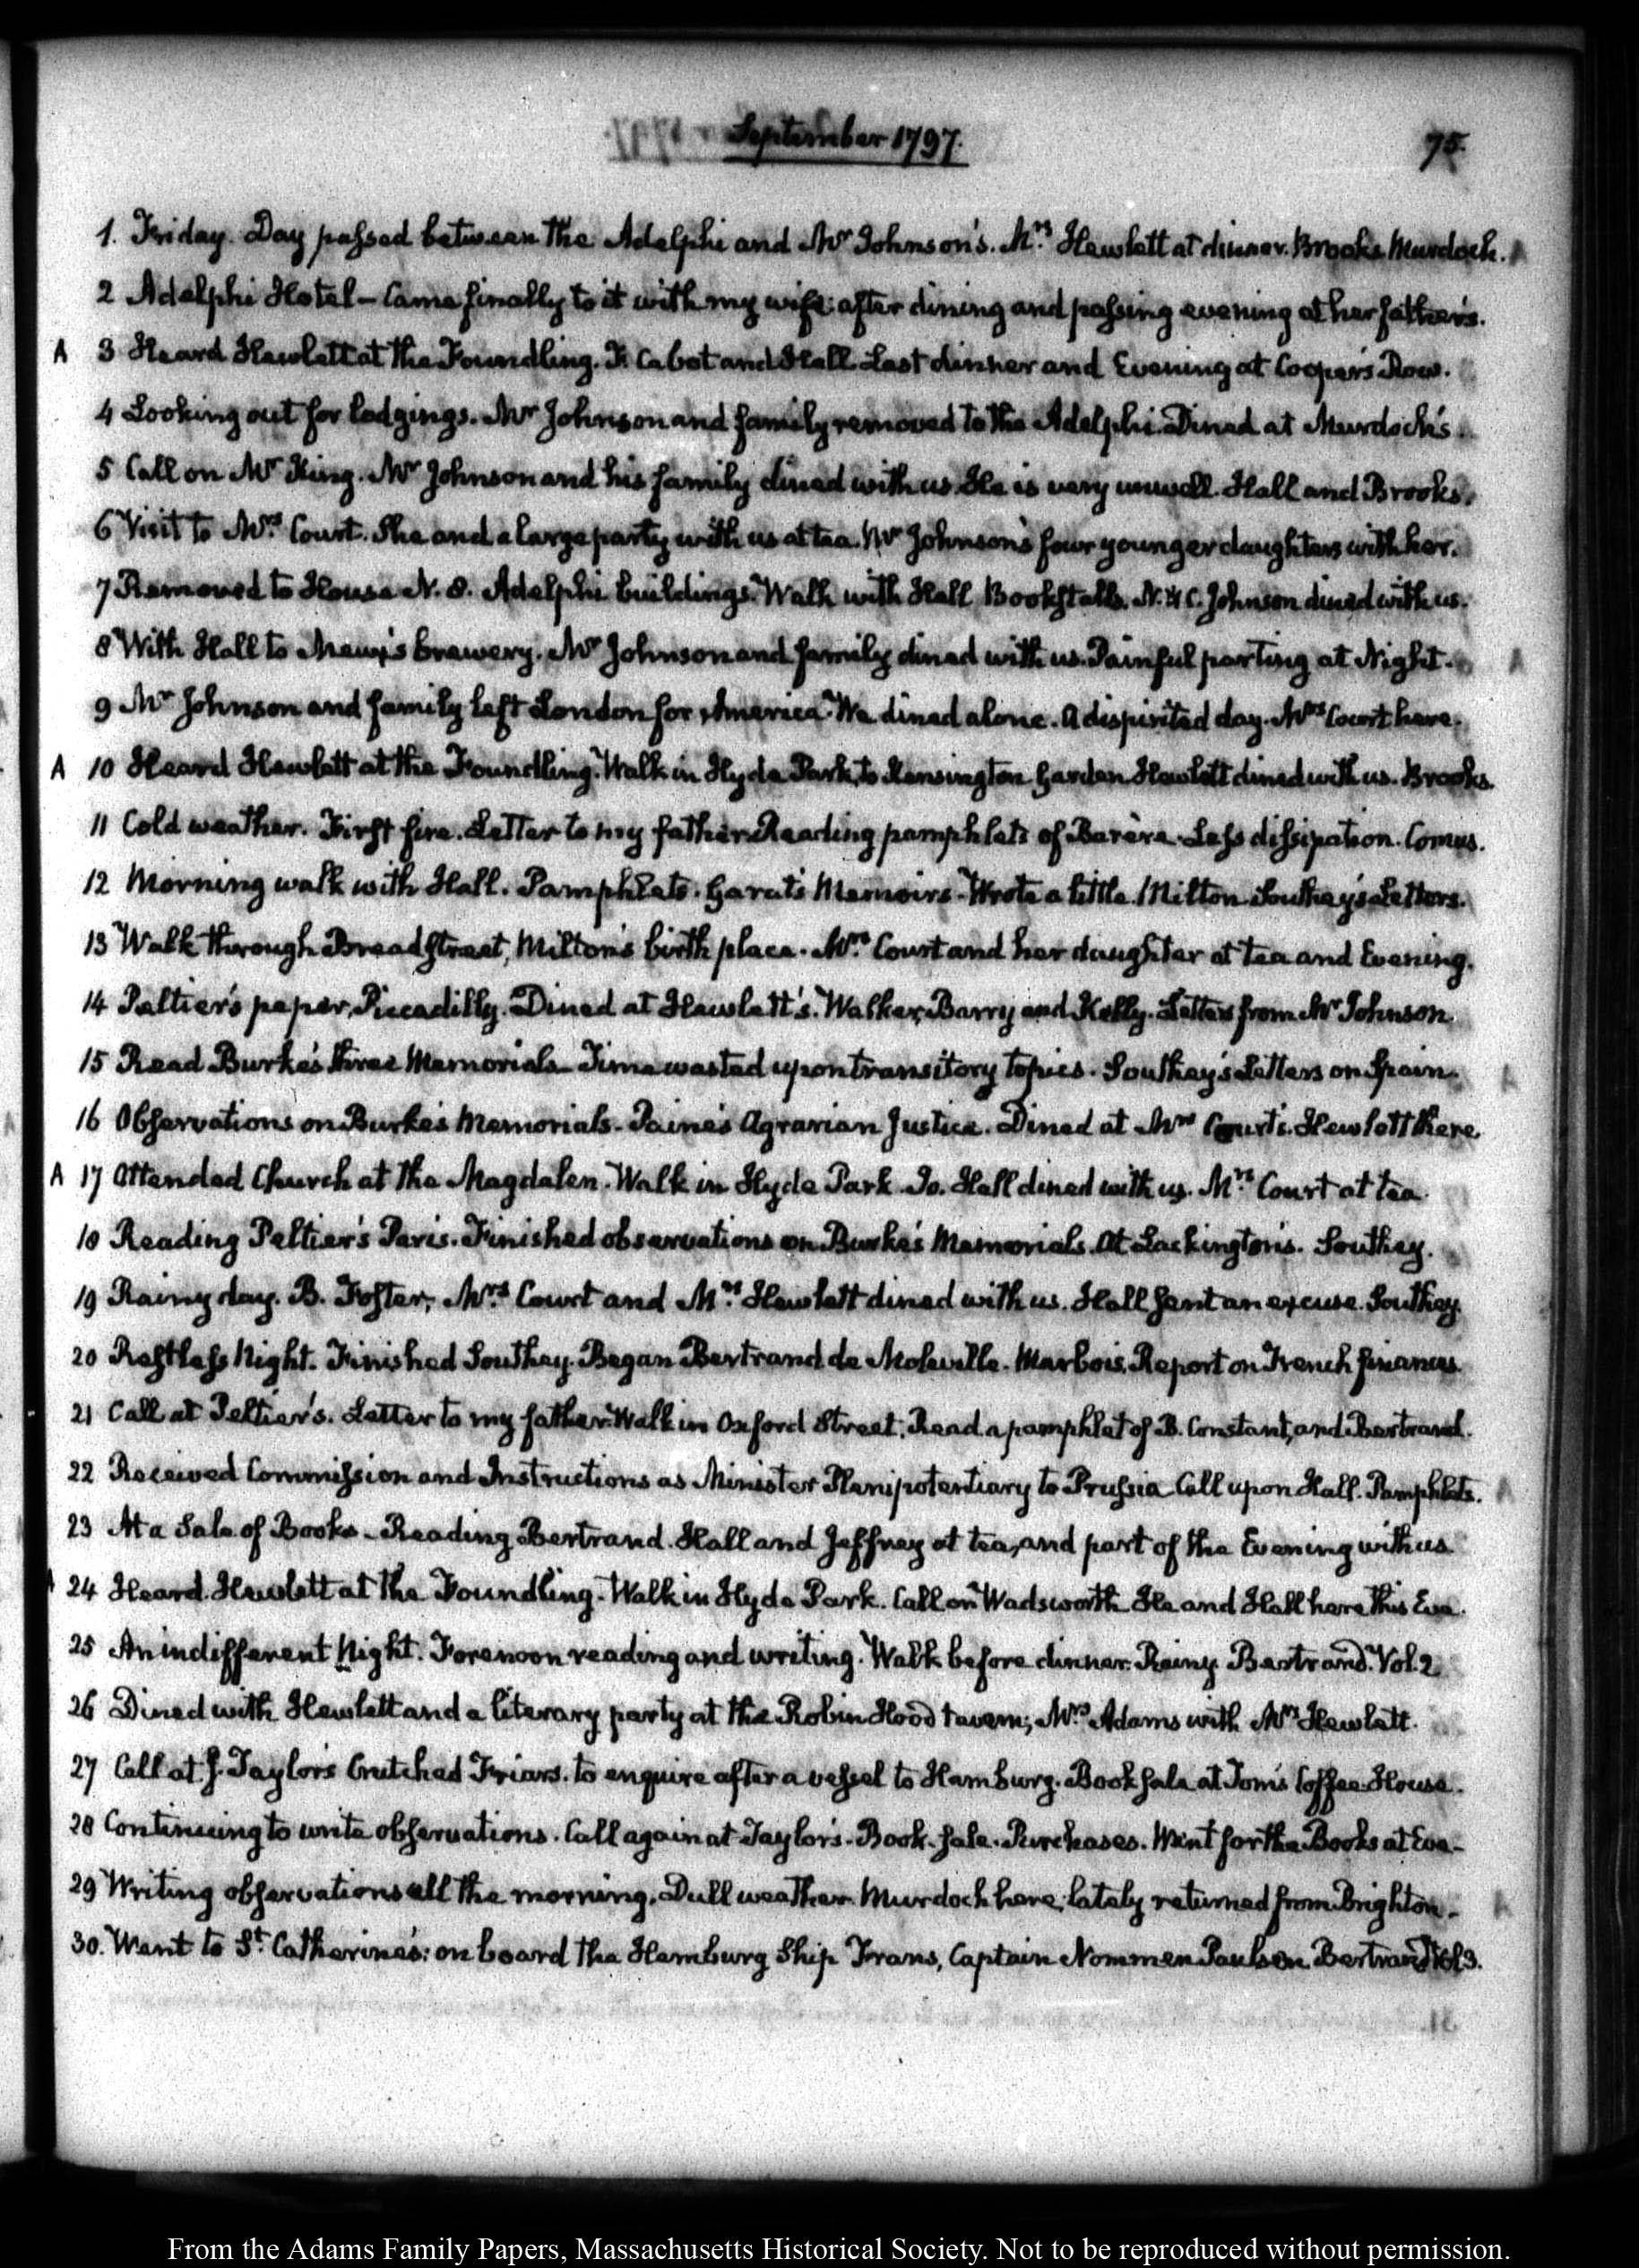 September 1797.
75.
1. Friday. Day passed between the Adelphi and Mr Johnson's. Mrs Hewlett at dinner. Brooks. Murdoch.
2 Adelphi Hotel - Came finally to it with my wife: after dining and passing evening at her father's.
A 3 Heard Hewlett at the Foundling. F. Cabot and Hall. Last dinner and Evening at Cooper's Row.
4 Looking out for lodgings. Mr Johnson and family removed to the Adelphi. Dined at Murdoch's.
5 Call on Mr King. Mr Johnson and his family dined with us. He is very unwell. Hall and Brooks.
6 Visit to Mrs Court. She and a large party with us at tea. Mr Johnson's four younger daughters with her.
7 Removed to House N. 8. Adelphi buildings. Walk with Hall. Bookstalls. N. & C. Johnson dined with us.
8 With Hall to Meux's brewery. Mr Johnson and family dined with us. Painful parting at Night.
9 Mr Johnson and family left London for America. We dined alone. A dispirited day. Mrs Court here.
A 10 Heard Hewlett at the Foundling. Walk in Hyde Park, to Kensington Garden. Hewlett dined with us. Brooks.
11 Cold weather. First fire. Letter to my father. Reading pamphlets of Barère. Less dissipation. Comus.
12 Morning walk with Hall. Pamphlets. Garat's Memoirs. Wrote a little. Milton. Southey's Letters.
13 Walk through Bread Street, Milton's birth place. Mrs Court and her daughter at tea and Evening.
14 Peltier's paper, Piccadilly. Dined at Hewlett's. Walker, Barry and Kelly. Letters from Mr Johnson.
15 Read Burke's three Memorials. Time wasted upon transitory topics. Southey's Letters on Spain.
16 Observations on Burke's Memorials. Paine's Agrarian Justice. Dined at Mrs Court's. Hewlett there.
A 17 Attended Church at the Magdalen. Walk in Hyde Park. Jo. Hall dined with us. Mrs Court at tea.
18 Reading Peltier's Paris. Finished observations on Burke's Memorials. At Lackington's. Southey.
19 Rainy day. B. Foster, Mrs Court and Mrs Hewlett dined with us. Hall sent an excuse. Southey.
20 Restless Night. Finished Southey. Began Bertrand de Moleville. Marbois, Report on French finances.
21 Call at Peltier's. Letter to my father. Walk in Oxford Street. Read a pamphlet of B. Constant, and Bertrand.
22 Received Commission and Instructions as Minister Plenipotentiary to Prussia. Call upon Hall. Pamphlets.
23 At a Sale of Books - Reading Bertrand. Hall and Jeffrey at tea, and part of the Evening with us.
A 24 Heard Hewlett at the Foundling. Walk in Hyde Park. Call on Wadsworth. He and Hall here this Eve.
25 An indifferent Night. Forenoon reading and writing. Walk before dinner. Rainy. Bertrand. Vol. 2
26 Dined with Hewlett and a literary party at the Robin Hood tavern; Mrs Adams with Mrs Hewlett.
27 Call at J. Taylor's Crutched Friars. to enquire after a vessel to Hamburg. Book sale at Tom's Coffee House.
28 Continuing to write observations. Call again at Taylor's. Book-sale. Purchases. Went for the Books at Eve-
29 Writing observations all the morning. Dull weather. Murdoch here, lately returned from Brighton.
30. Went to St. Catherine's: on board the Hamburg Ship Frans, Captain Nommen Paulsen. Bertrand Vol 3.
From the Adams Family Papers, Massachusetts Historical Society. Not to be reproduced without permission.